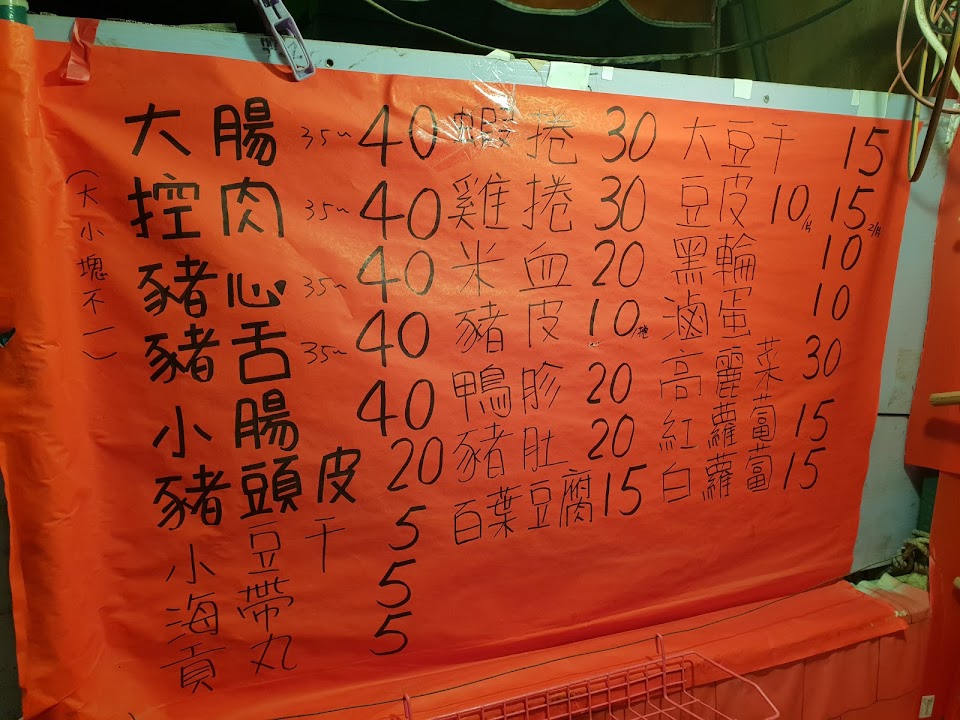 大腸 35~40
控肉 35~40
豬心 35~40
豬舌 35~40
(大小塊不一)
小腸 40
豬頭皮 20
小豆干 5
海帶 5
貢丸 5
蝦捲 30
雞捲 30
米血 20
豬皮 10/塊
鴨胗 20
豬肚 20
百葉豆腐 15
大豆干 15
豆皮 10/片 15 2/片
黑輪 10
滷蛋 10
高麗菜 30
紅蘿蔔 15
白蘿蔔 15